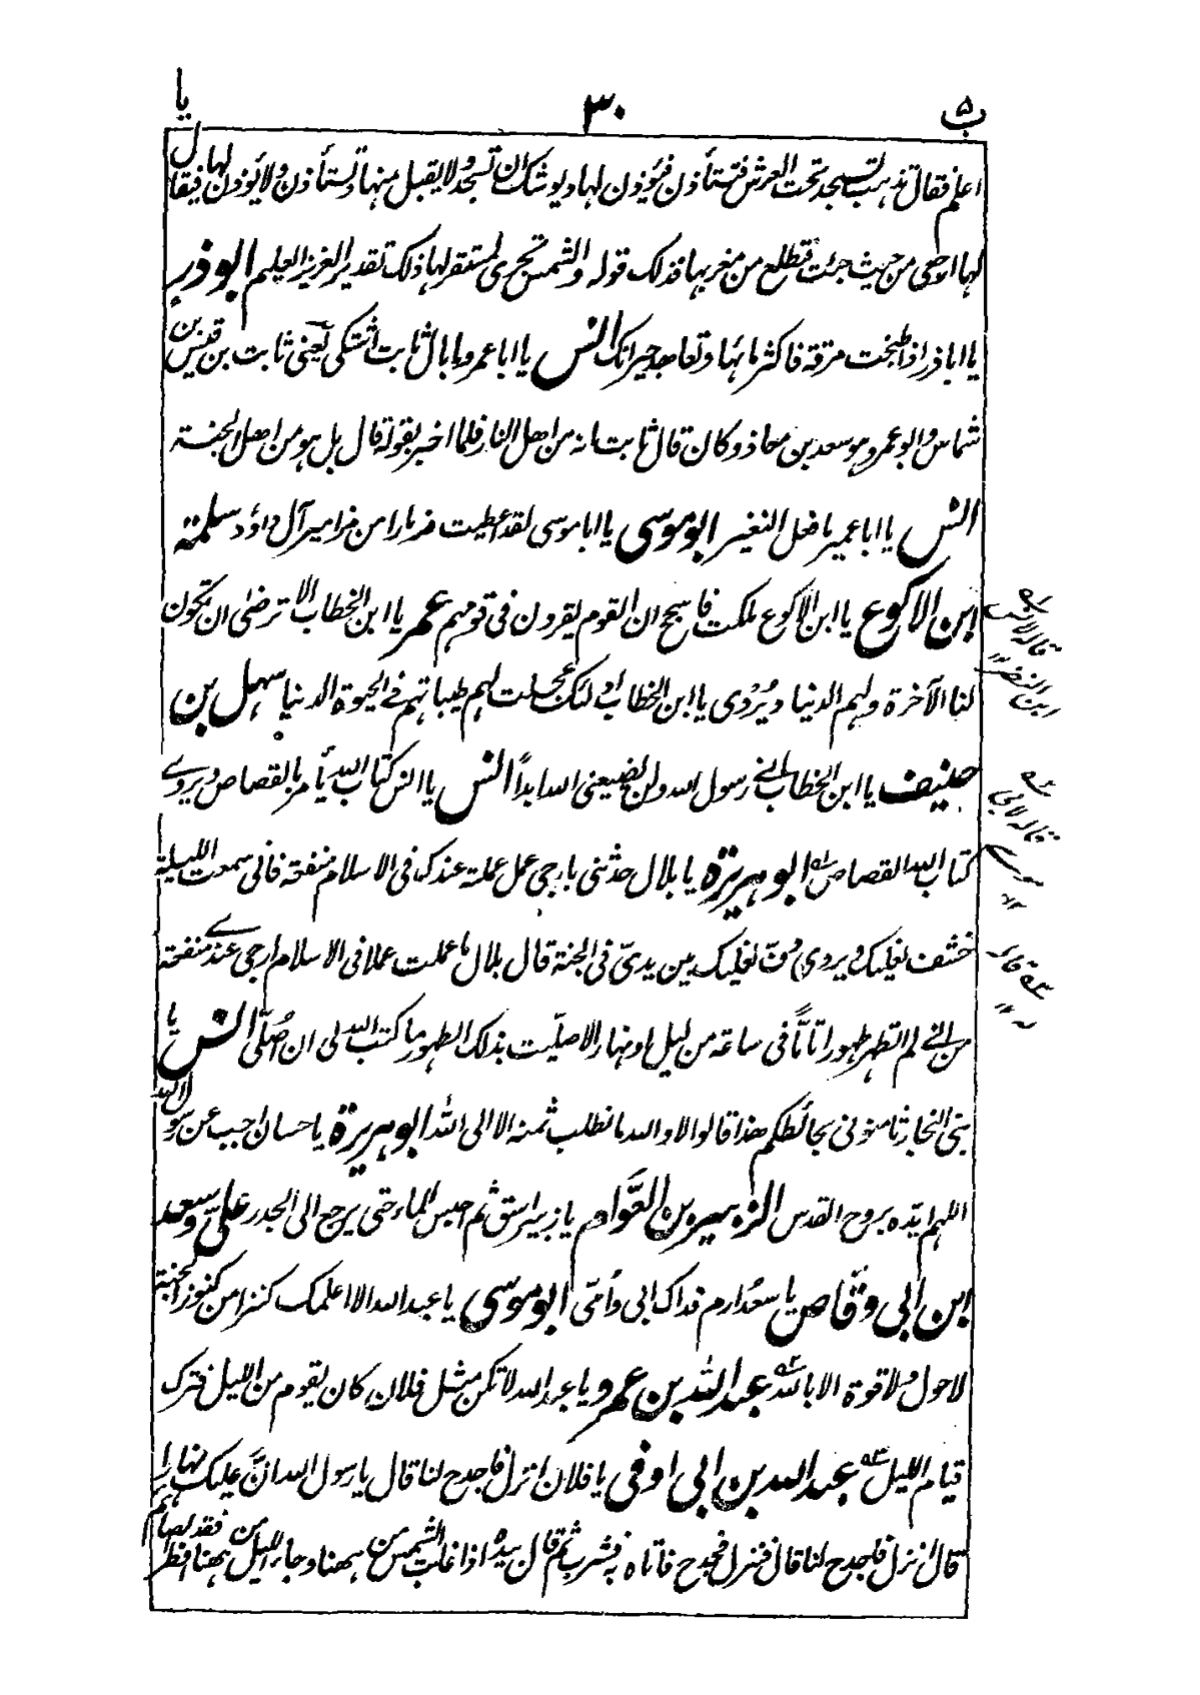 يا
٣٠
ب ٥
اعلم فقال تذهب تسجد تحت العرش فتستأذن فيؤذن لها ويوشك ان تسجد ولا يقبل منها وتستأذن ولا يؤذن لها فيقال
لها ارجعى من حيث جئت فتطلع من مغربها فذلك قوله والشمس تجرى لمستقر لها ذلك تقدير العزيز العليم ابوذر
يا اباذر اذا طبخت مرقة فاكثر مائها وتعاهد جيرانك انس يا ابا عمرو ما بال ثابت اشتكى يعنى ثابت بن قيس بن
شماس وابو عمرو هو سعد بن معاذ وكان قال ثابت انه من اهل النار فلما اخبر بقوله قال بل هو من اهل الجنة
انس يا ابا عمير ما فعل النغير ابو موسى يا ابا موسى لقد اعطيت مزمارا من مزامير آل داؤد سلمة
ابن الاكوع يا ابن الاكوع ملكت فاسجح ان القوم يقرون فى قومهم عمر يا ابن الخطاب الا ترضى ان تكون
لنا الآخرة ولهم الدنيا ويُرْوى يا ابن الخطاب اولئك عجلت لهم طيباتهم فى الحيوة الدنيا سهل بن
حنيف يا ابن الخطاب انى رسول الله ولن يضيعنى الله ابداً انس يا انس كتاب الله يأمر بالقصاص ويروى
كتاب الله القصاص ابو هريرة يا بلال حدثنى بارجى عمل عملته عندك فى الاسلام منفعة فانى سمعت الليلة
خشف نعليك ويروى دفّ نعليك بين يدىّ فى الجنة قال بلال ما عملت عملا فى الاسلام ارجى عندى منفعة
من انى لم اتطهر طهورا تامّاً فى ساعة من ليل او نهار الا صليت بذلك الطهور ما كتب الله لى ان اُصلّى انس يا
بنى النجار ثامنونى بحائطكم هذا قالوا لا والله ما نطلب ثمنه الا الى الله ابو هريرة يا حسان اجب عن رسول الله
اللهم ايّده بروح القدس الزبير بن العوّام يا زبير اسق ثم احبس الماء حتى يرجع الى الجدر علىّ وسعد
ابن ابى وقّاص يا سعدُ ارم فداك ابى واُمّى ابو موسى يا عبد الله الا اعلمك كنزا من كنوز الجنة
لا حول ولا قوة الا بالله عبد الله بن عمرو يا عبد الله لا تكن مثل فلان كان يقوم من الليل فترك
قيام الليل عبد الله بن ابى اوفى يا فلان انزل فاجدح لنا قال يا رسول الله انّ عليك نهارا
قال انزل فاجدح لنا قال فنزل فجدح فاتاه به فشرب ثم قال بيده اذا غابت الشمس من ههنا وجاء الليل من ههنا فقد افطر الصائم
قاله لانس
بن النضر
قاله لابى
قاله